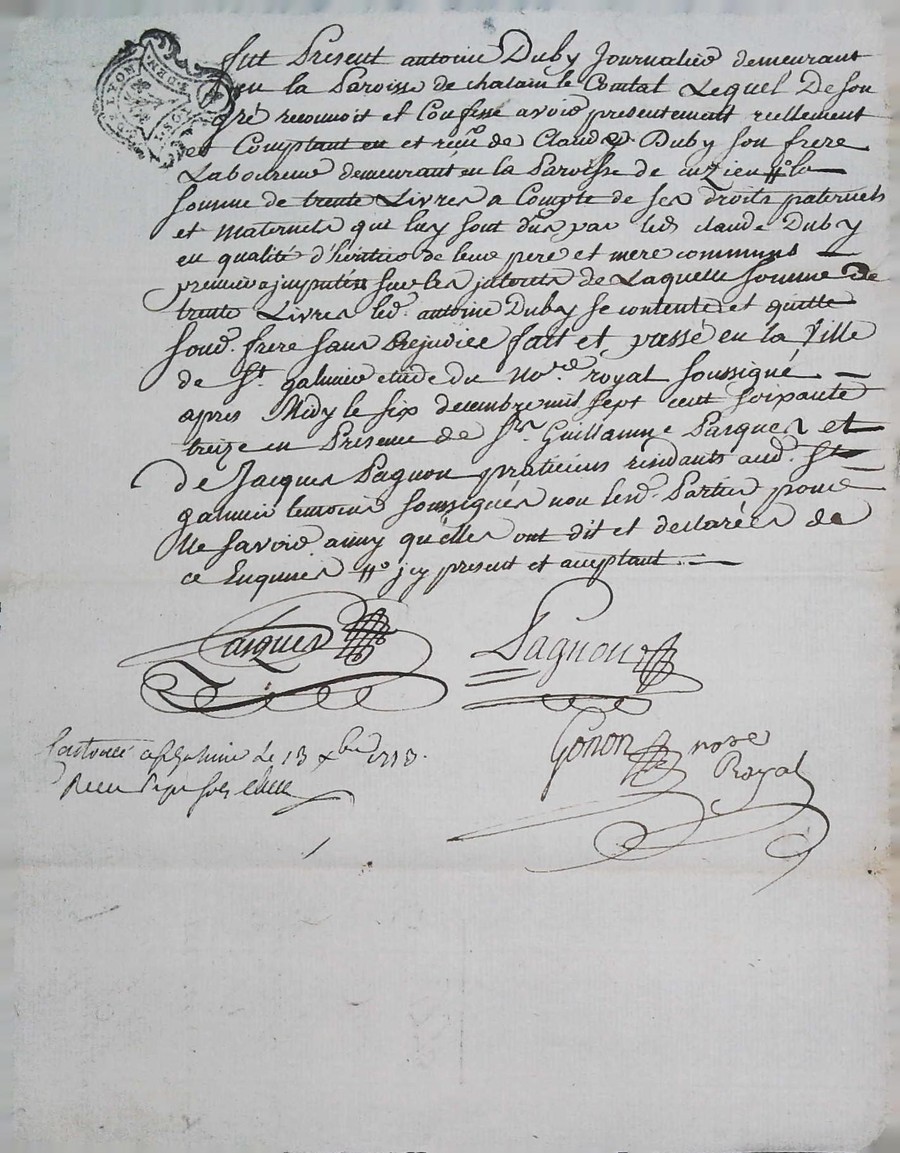 GEN. DE LYON
fut Présent antoine Duby Journalier demeurant
en la Paroisse de chalain le Comtal Lequel De son
gré reconnoit et Confesse avoir presentement reellement
et Comptant en et reçu de Claude Duby son frere
Laboureur demeurant en la Paroisse de cuzieu #o la
somme de trente Livres a Compte de ses droits paternels
et maternels qui luy sont dus par led. claude Duby
en qualité d'héritier de leur pere et mere communs
premier a jmputer sur les jnterets de Laquelle somme de
trente Livres led. antoine Duby se contente et quitte
sond. frere sans Prejudice fait et passé en la Ville
de St. galmier etude du nore. royal soussigné
apres Midy le six decembre mil sept cent soixante
treize en Presence de Sr. Guillaume Parquet et
de Jacques Pagnon praticiens residants aud. St
galmier temoins soussignés non lesd. Parties pour
ne savoir ainsy qu'elles ont dit et declarées de
ce Enquises #o jcy present et acceptant
Parquet
Pagnon
Gonon nore
Royal
a St galmier Le 13 xbre 1773.
Recu